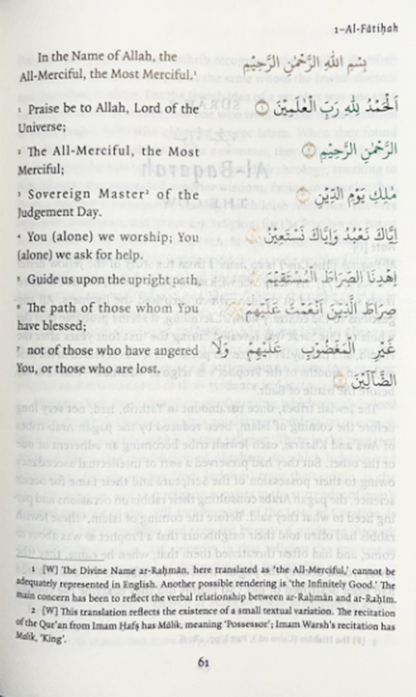 1–Al-Fātiḥah
In the Name of Allah, the
All-Merciful, the Most Merciful.¹
بِسْمِ اللَّهِ الرَّحْمَٰنِ الرَّحِيمِ
1 Praise be to Allah, Lord of the
Universe;
الْحَمْدُ لِلَّهِ رَبِّ الْعَٰلَمِينَ ١
2 The All-Merciful, the Most
Merciful;
الرَّحْمَٰنِ الرَّحِيمِ ٢
3 Sovereign Master² of the
Judgement Day.
مَٰلِكِ يَوْمِ الدِّينِ ٣
4 You (alone) we worship; You
(alone) we ask for help.
إِيَّاكَ نَعْبُدُ وَإِيَّاكَ نَسْتَعِينُ ٤
5 Guide us upon the upright path,
اهْدِنَا الصِّرَاطَ الْمُسْتَقِيمَ ٥
6 The path of those whom You
have blessed;
صِرَاطَ الَّذِينَ أَنْعَمْتَ عَلَيْهِمْ ٦
7 not of those who have angered
You, or those who are lost.
غَيْرِ الْمَغْضُوبِ عَلَيْهِمْ وَلَا
الضَّآلِّينَ ٧
1 [W] The Divine Name ar-Raḥmān, here translated as ‘the All-Merciful,’ cannot be
adequately represented in English. Another possible rendering is ‘the Infinitely Good.’ The
main concern has been to reflect the verbal relationship between ar-Raḥmān and ar-Raḥīm.
2 [W] This translation reflects the existence of a small textual variation. The recitation
of the Qur’an from Imam Ḥafṣ has Mālik, meaning ‘Possessor’; Imam Warsh’s recitation has
Malik, ‘King’.
61